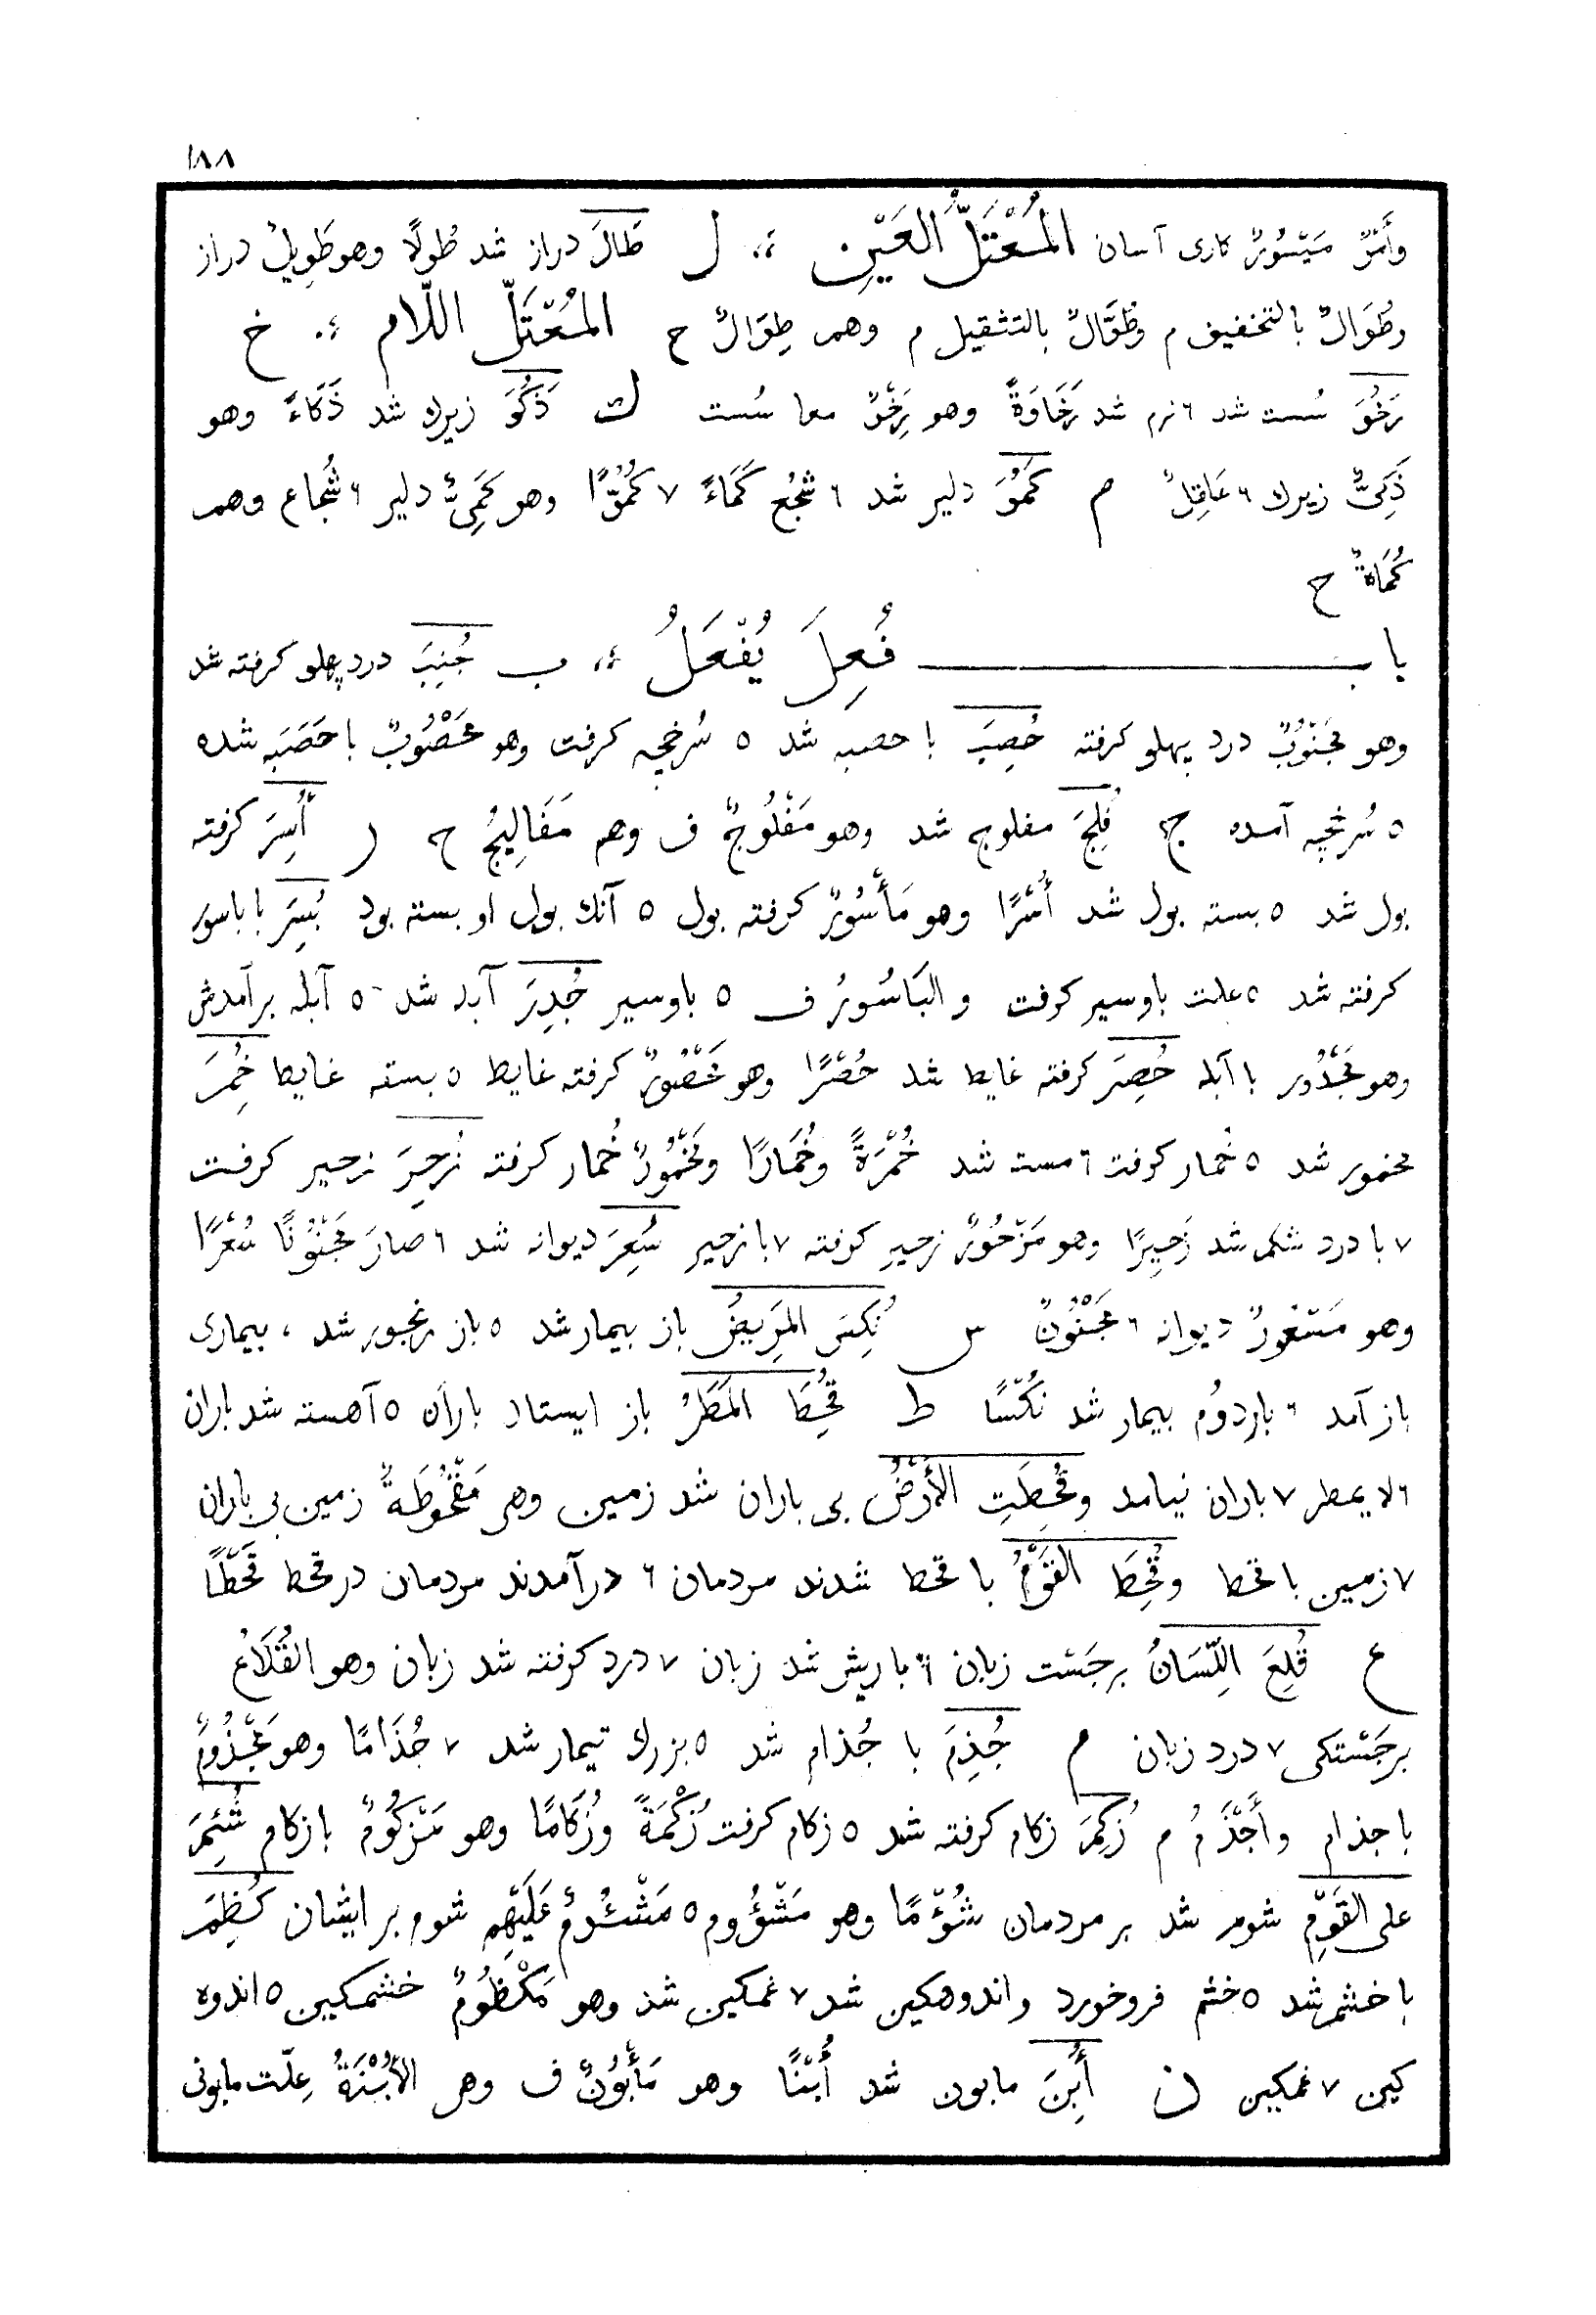 ١٨٨
وأَمْرٌ مَيْسُورٌ كارى آسان المُعْتَلُّ العَيْنِ ل طَالَ دراز شد طُولًا وهو طَوِيلٌ دراز
وطُوَالٌ بالتخفيف م وطُوَّالٌ بالتثقيل م وهم طِوَالٌ ح المُعْتَلُّ اللّام خ
رَخُوَ سُست شد ٦ نرم شد رَخَاوَةً وهو رِخْوٌ معا سُست ك ذَكُوَ زيرك شد ذَكَاءً وهو
ذَكِىٌّ زيرك ٦ عَاقِلٌ م كَمُوَ دلير شد ٦ شَجُع كَمَاءً ٧ كُمُوًّا وهو كَمِىٌّ دلير ٦ شُجاع وهم
كُمَاةٌ ح
باب فُعِلَ يُفْعَلُ ب جُنِبَ درد پهلو كرفته شد
وهو مَجْنُوبٌ درد پهلو كرفته حُصِبَ با حصبه شد ٥ سُرخجه كرفت وهو مَحْصُوبٌ با حَصَبَه شده
٥ سُرخچه آمده ج فُلِجَ مفلوج شد وهو مَفْلُوجٌ ف وهم مَفَالِيجُ ح ر أُسِرَ كرفته
بول شد ٥ بسته بول شد أُسْرًا وهو مَأْسُورٌ كرفته بول ٥ آنك بول او بسته بود بُسِرَ با باسور
كرفته شد ٥ علت باوسير كرفت والبَاسُورُ ف ٥ باوسير جُدِرَ آبله شد ٥ آبله برآمدش
وهو مَجْدُور با آبله حُصِرَ كرفته غايط شد حُصْرًا وهو مَحْصُورٌ كرفته غايط ٥ بسته غايط خُمِرَ
مخمور شد ٥ خُمار كرفت ٦ مست شد خُمْرَةً وخُمَارًا ومَخْمُورٌ خُمار كرفته زُحِرَ زحير كرفت
٧ با درد شكم شد زَحِيرًا وهو مَزْحُورٌ زحير كرفته ٧ با زحير سُعِرَ ديوانه شد ٦ صارَ مَجْنُونًا سُعْرًا
وهو مَسْعُورٌ ديوانه ٦ مَجْنُونٌ س نُكِسَ المَرِيضُ باز بيمار شد ٥ باز رنجور شد ، بيمارى
باز آمد ٦ بار دوُم بيمار شد نُكْسًا ط قُحِطَ المَطَرُ باز ايستاد باران ٥ آهسته شد باران
٦ لا يمطر ٧ باران نيامد وقُحِطَتِ الأَرْضُ بى باران شد زمين وهى مَقْحُوطَةٌ زمين بى باران
٧ زمين با قحط وقُحِطَ القَوْمُ با قحط شدند مردمان ٦ درآمدند مردمان در قحط قَحْطًا
ع قُلِعَ اللِّسَانُ برجَسْت زبان ٦ با ريش شد زبان ٧ درد كرفته شد زبان وهو القُلَاعُ
برجَسْتكى ٧ درد زبان م جُذِمَ با جُذام شد ٥ بزرك تيمار شد ٧ جُذَامًا وهو مَجْذُومٌ
با جذام وأَجْذَمُ م زُكِمَ زكام كرفته شد ٥ زكام كرفت زُكْمَةً وزُكَامًا وهو مَزْكُومٌ با زكام شُئِمَ
على القَوْمِ شوم شد بر مردمان شُؤْمًا وهو مَشْؤُوم ٥ مَشْئُومٌ عَلَيْهِم شوم بر ايشان كُظِمَ
با خشم شد ٥ خشم فروخورد واندوهكين شد ٧ غمكين شد وهو مَكْظُومٌ خشمكين ٥ اندوه
كين ٧ غمكين ن أُبِنَ مابون شد أُبْنًا وهو مَأْبُونٌ ف وهى الأُبْنَةُ عِلّت مابونى